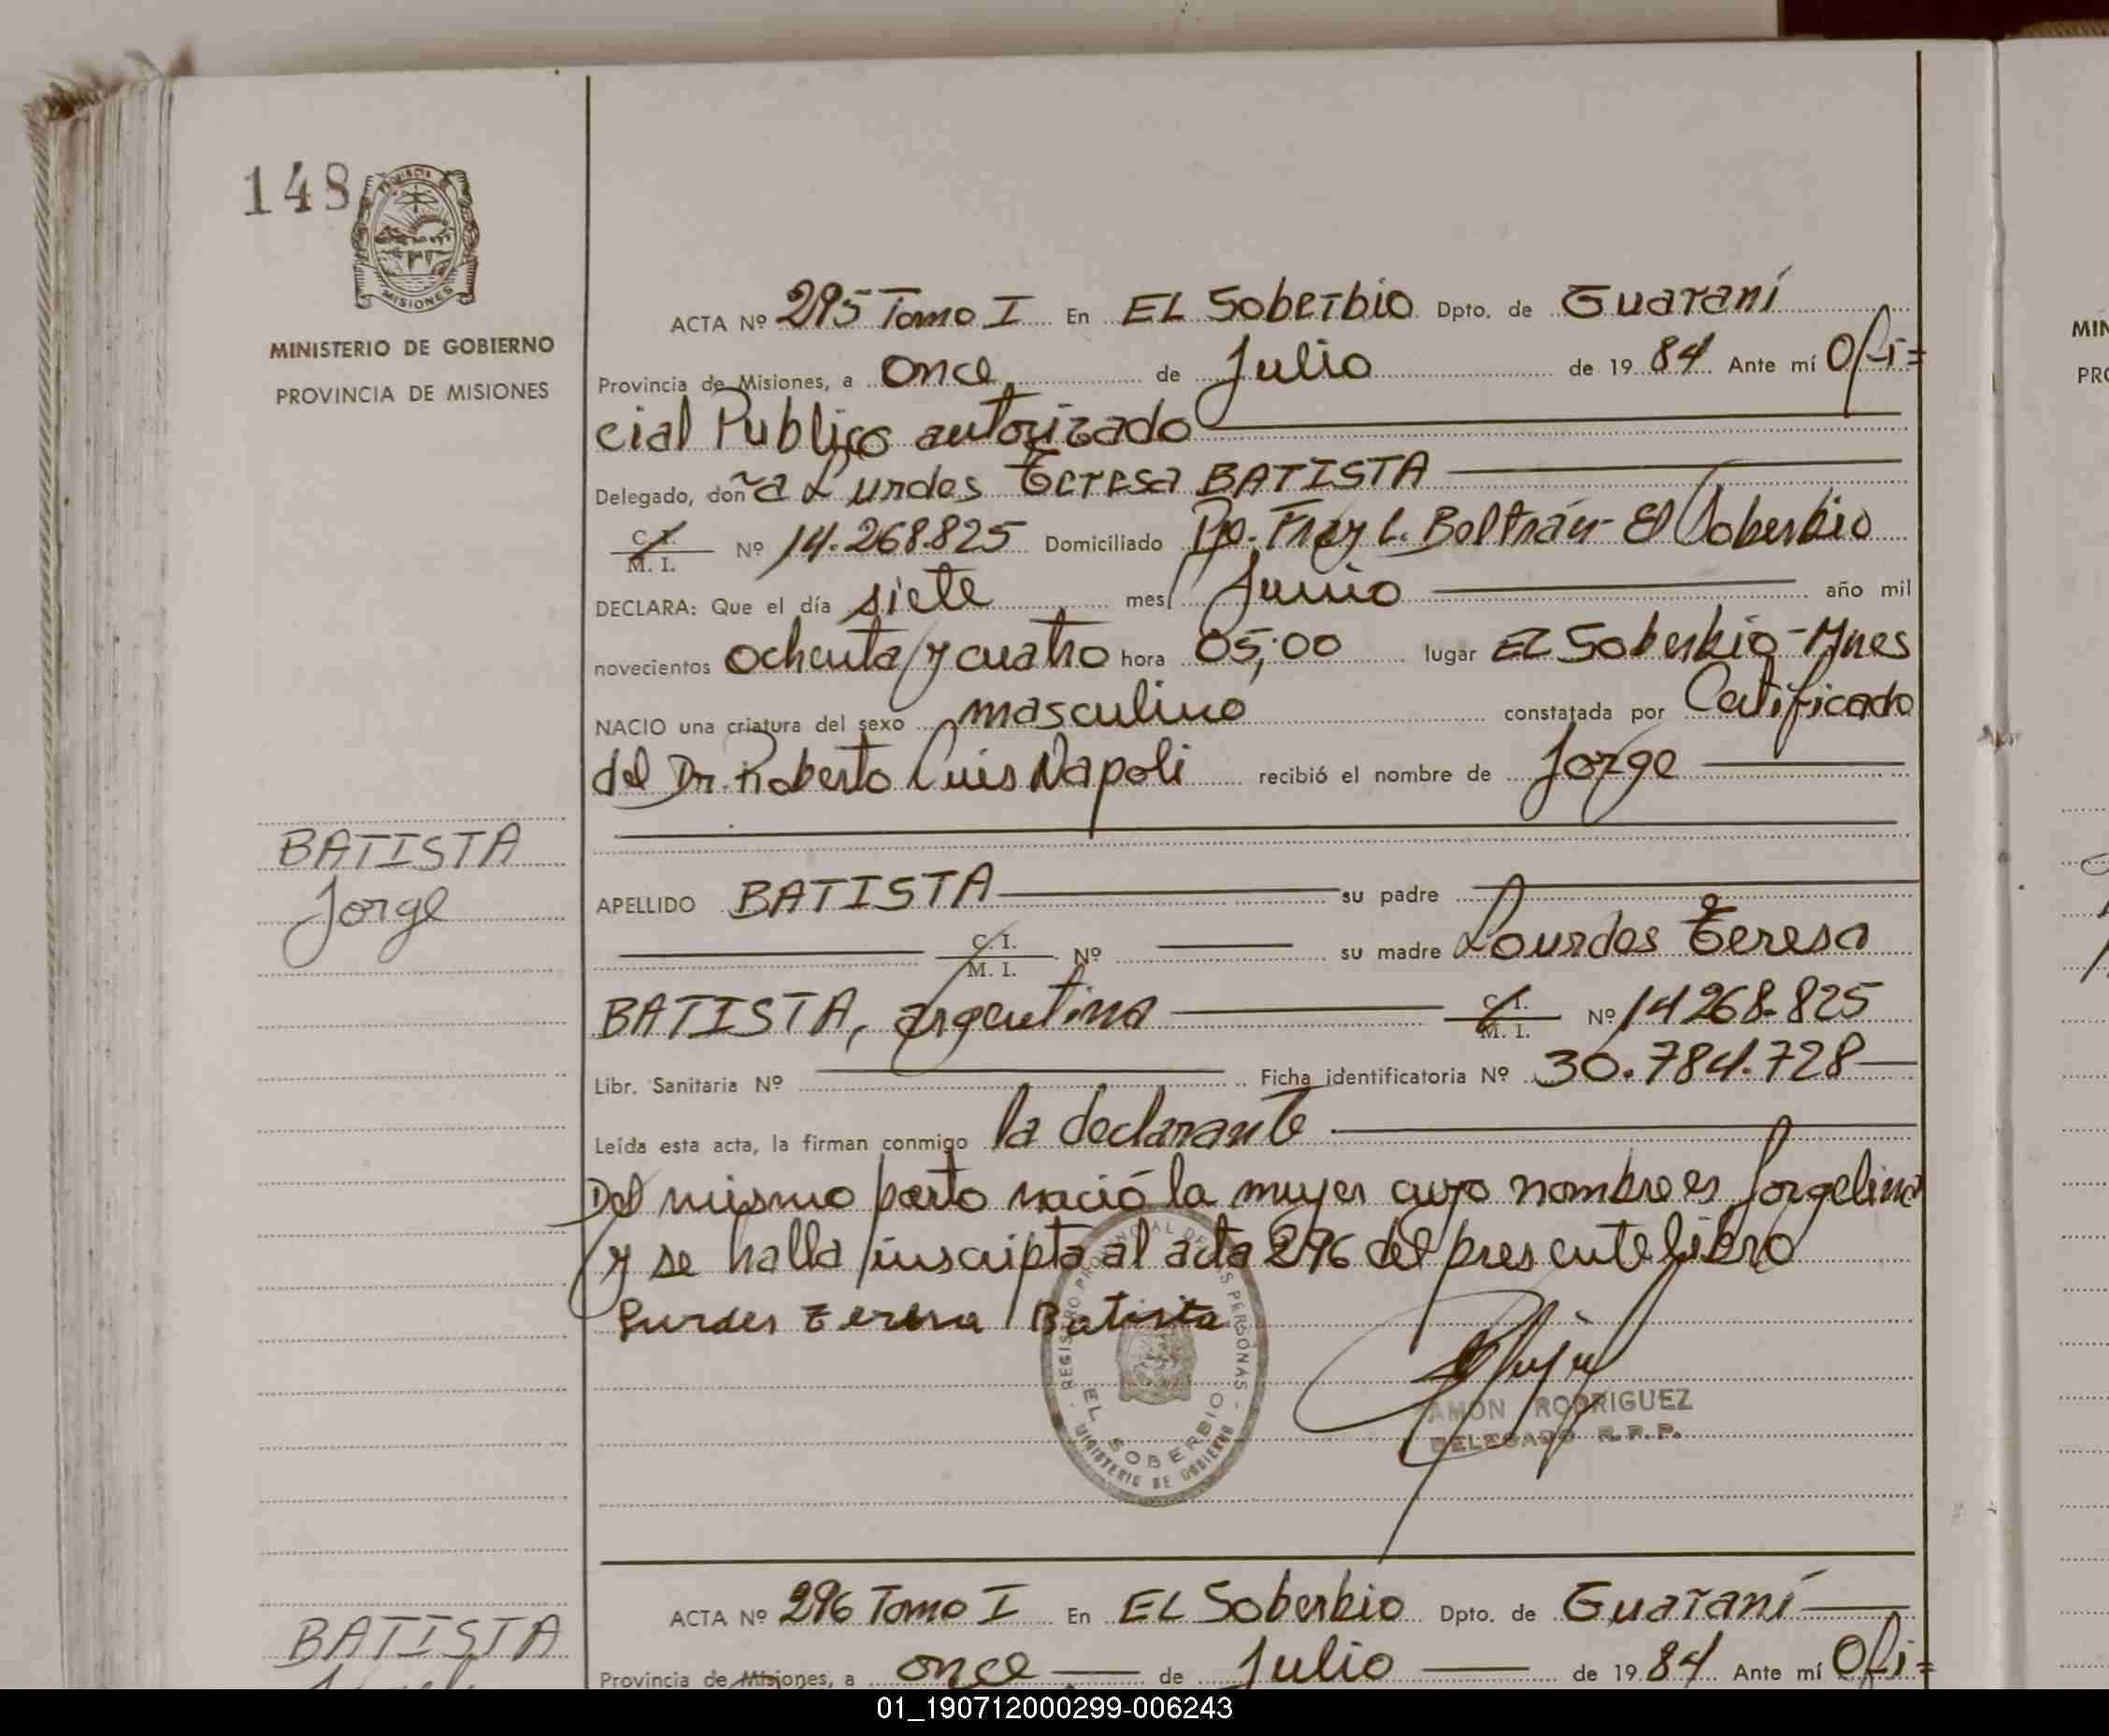 148
PROVINCIA
MISIONES
MINISTERIO DE GOBIERNO
PROVINCIA DE MISIONES
ACTA Nº 295 Tomo I En EL Soberbio Dpto. de Guaraní
Provincia de Misiones, a Once de Julio de 1984 Ante mí Ofi=
cial Publico autorizado
Delegado, doña Lurdes Teresa BATISTA
C. I.
M. I. Nº 14.268.825 Domiciliado Pje. Fray L. Beltrán - El Soberbio
DECLARA: Que el día siete mes Junio año mil
novecientos Ochenta y cuatro hora 05;00 lugar EL Soberbio - Mnes
NACIO una criatura del sexo masculino constatada por Certificado
del Dr. Roberto Luis Napoli recibió el nombre de Jorge
BATISTA
Jorge
APELLIDO BATISTA su padre
C. I.
M. I. Nº su madre Lourdes Teresa
BATISTA, argentina C. I.
M. I. Nº 14268.825
Libr. Sanitaria Nº Ficha identificatoria Nº 30.784.728
Leída esta acta, la firman conmigo la declarante
Del mismo parto nació la mujer cuyo nombre es Jorgelina
y se halla inscripta al acta 296 del presente libro
Lurdes Teresa Batista
REGISTRO PROVINCIAL DE LAS PERSONAS
EL SOBERBIO
MINISTERIO DE GOBIERNO
AMON RODRIGUEZ
DELEGADO R.P.P.
ACTA Nº 296 Tomo I En EL Soberbio Dpto. de Guaraní
BATISTA
Provincia de Misiones, a once de Julio de 1984 Ante mí Ofi=
MIN
PRO
01_190712000299-006243